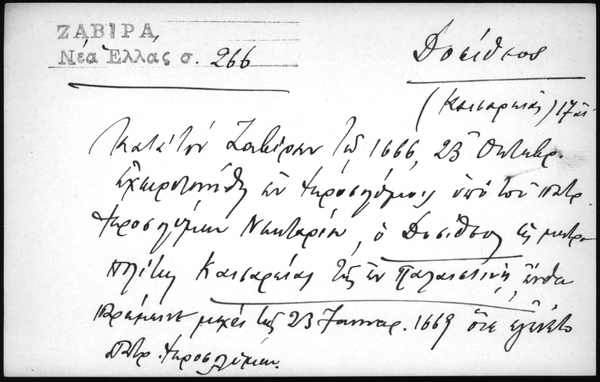 ΖΑΒΙΡΑ,
Νέα Ἑλλὰς σ. 266
Δοσίθεος
(Καισαρείας) 17 αἰ
Κατὰ τὸν Ζαβίραν τῷ 1666, 23 Ὀκτωβρ.
ἐχειροτονήθη ἐν Ἱεροσολύμοις ὑπὸ τοῦ πατρ.
Ἱεροσολύμων Νεκταρίου, ὁ Δοσίθεος εἰς μητρο
πολίτην Καισαρείας τῆς ἐν Παλαιστίνῃ, ἔνθα
παρέμεινε μέχρι τῆς 23 Ἰανουαρ. 1669 ὅτε ἐγένετο
πατρ. Ἱεροσολύμων.